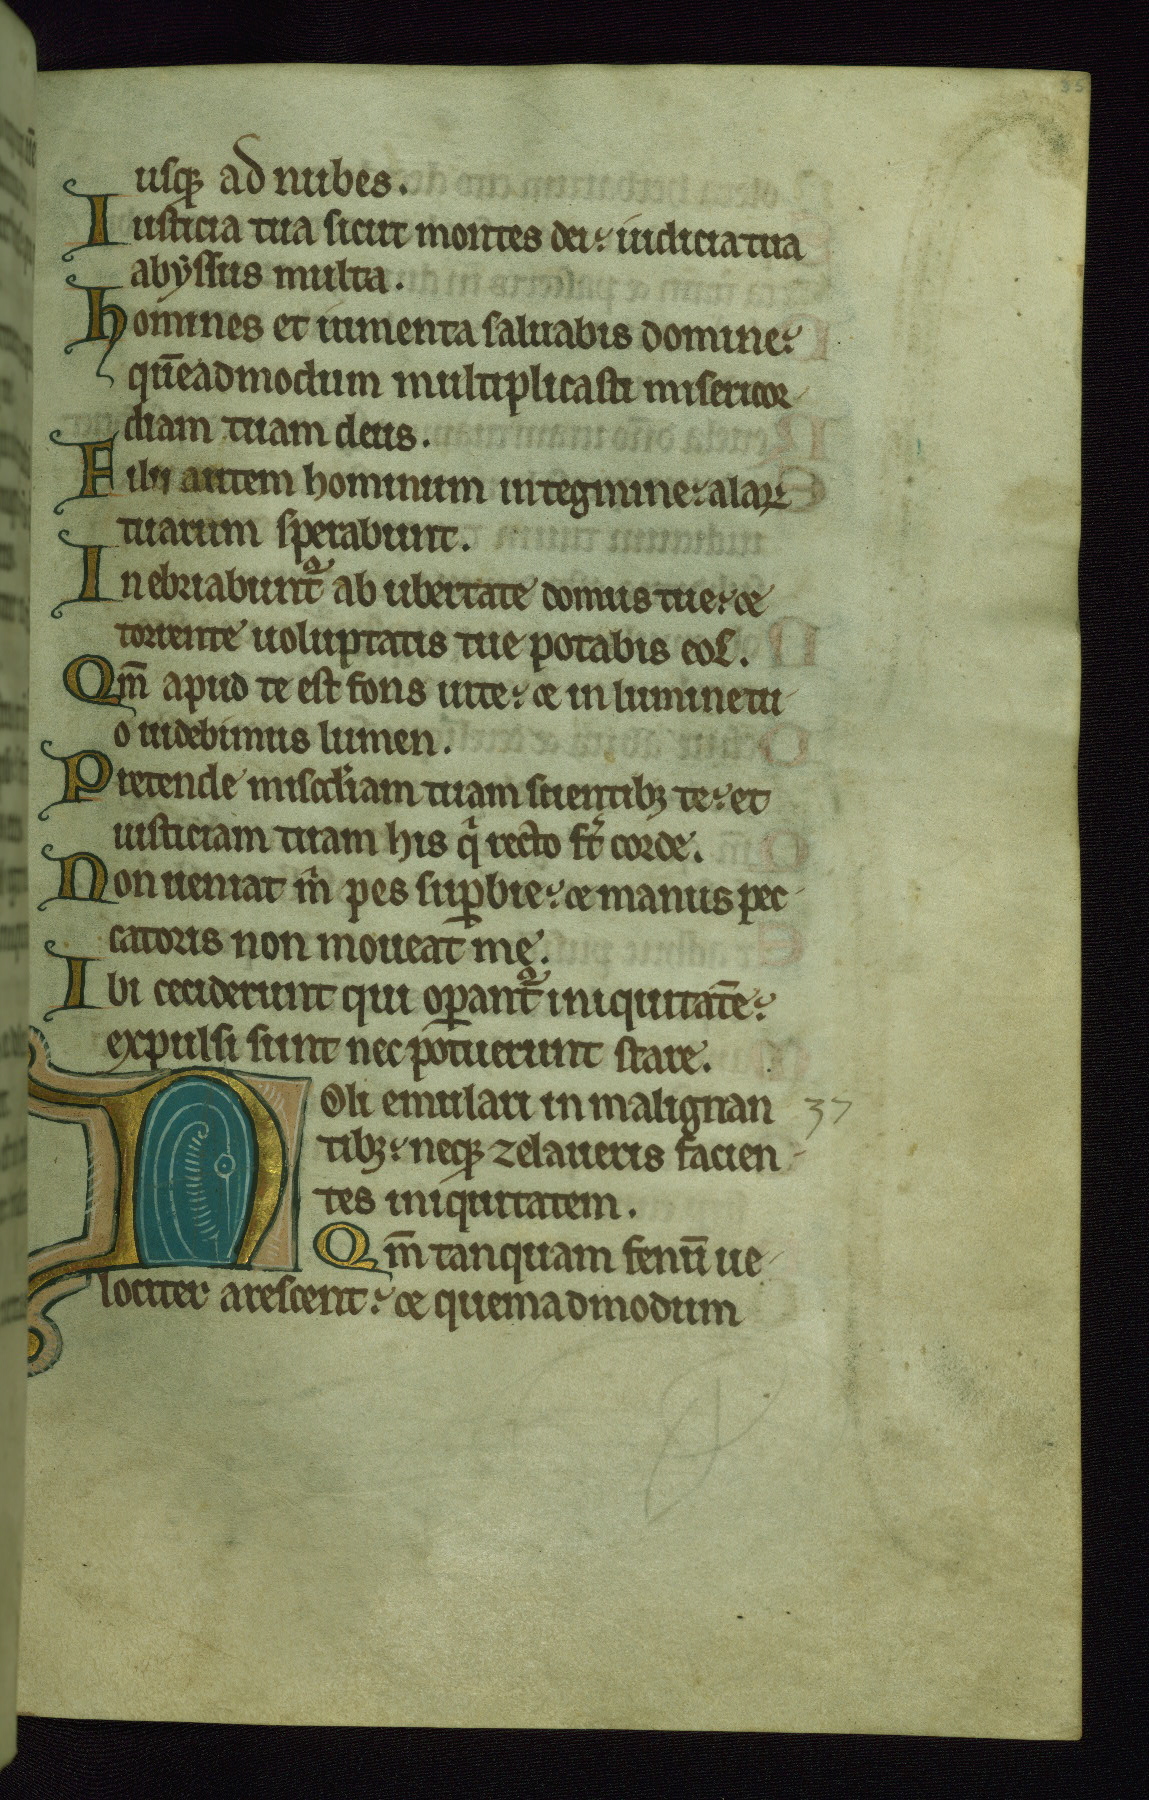 35
usq; ad nubes.
Iusticia tua sicut montes dei: iudicia tua
abyssus multa.
homines et iumenta saluabis domine:
quēadmodum multiplicasti misericor
diam tuam deus.
Filii autem hominum in tegmine: alaꝝ
tuarum sperabunt.
Inebriabunt᷑ ab ubertate domus tue: &
torrente uoluptatis tue potabis eos.
Qm̄ apud te est fons uite: & in lumine tu
o uidebimus lumen.
Pretende mis̄cdiam tuam scientibꝫ te: et
iusticiam tuam his qͥ recto st̄ corde.
Non ueniat m̄ pes suꝑbie: & manus pec
catoris non moueat me.
Ibi ceciderunt qui oꝑant᷑ iniquitatē:
expulsi sunt nec potuerunt stare.
Noli emulari in malignan 37
tibꝫ: neqꝫ zelaueris facien
tes iniquitatem.
Qm̄ tanquam fenū ue
lociter arescent: & quemadmodum